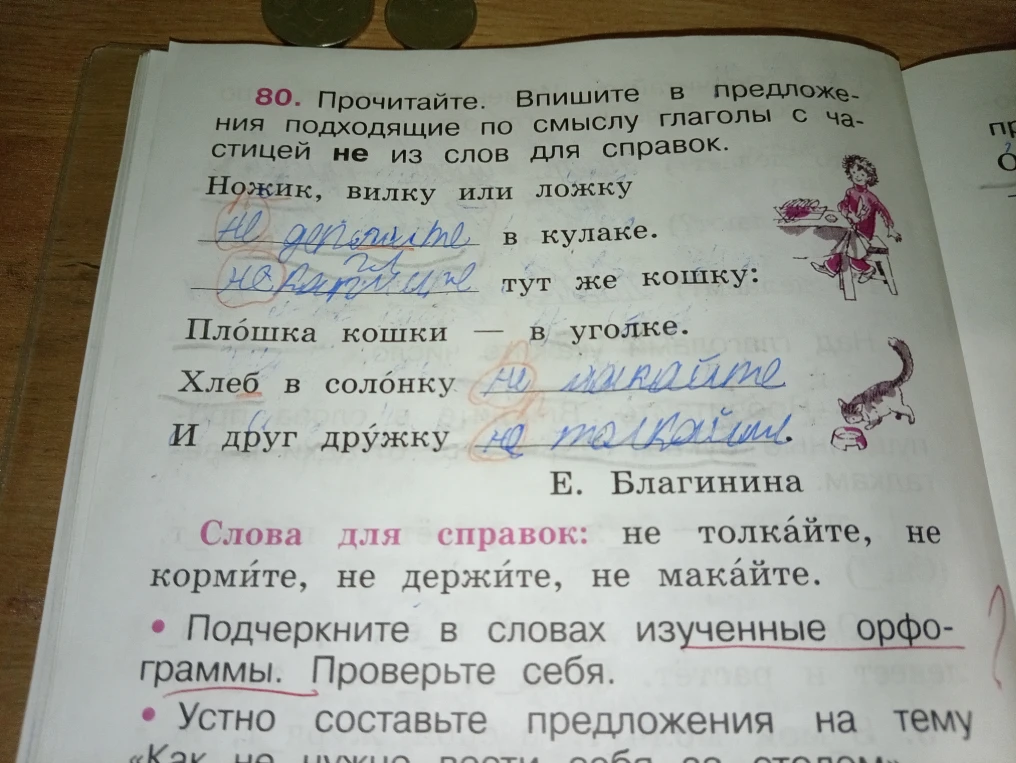 80. Прочитайте. Впишите в предложе-
ния подходящие по смыслу глаголы с ча-
стицей не из слов для справок.
Ножик, вилку или ложку
не держите в кулаке.
не кормите тут же кошку:
Пло́шка кошки — в уголке.
Хлеб в соло́нку не макайте
И друг дру́жку не толкайте.
Е. Благинина
Слова для справок: не толка́йте, не
корми́те, не держи́те, не мака́йте.
• Подчеркните в словах изученные орфо-
граммы. Проверьте себя.
• Устно составьте предложения на тему
«Как не нужно вести себя за столом».